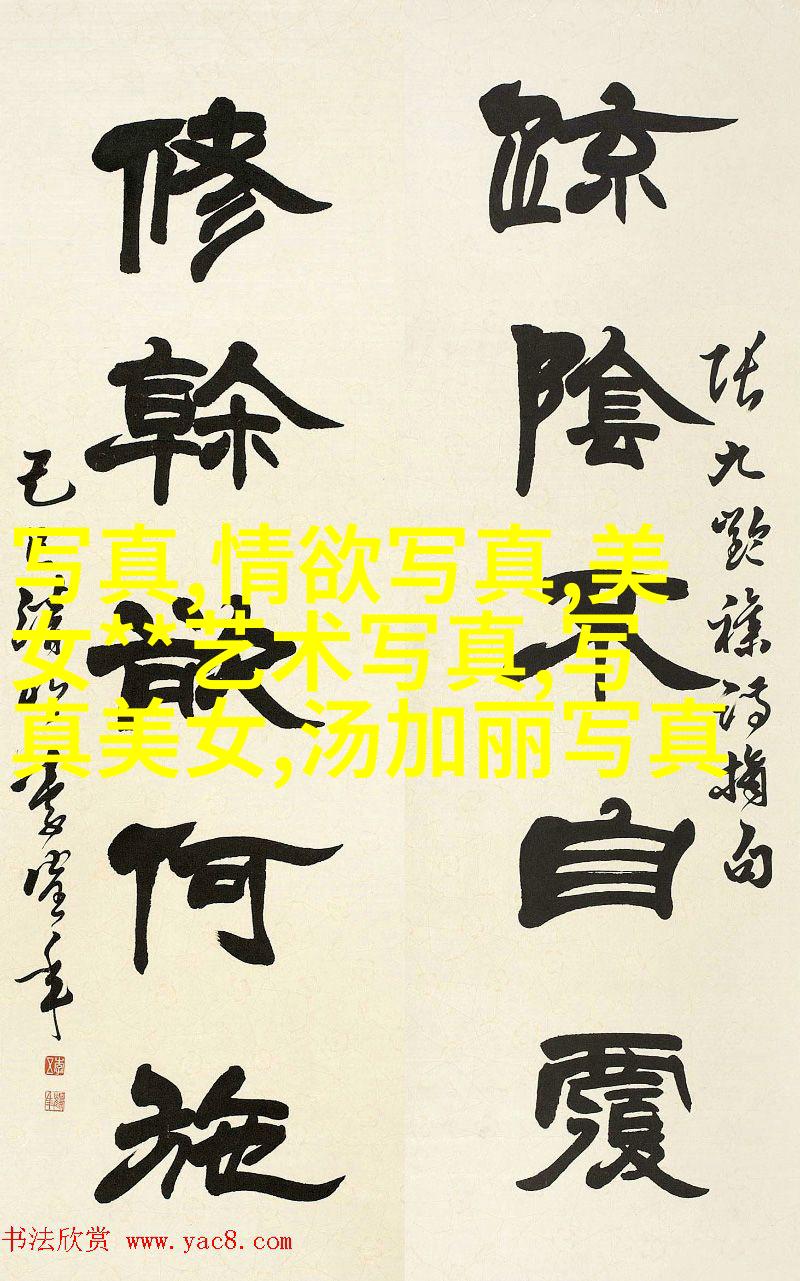 張九齡襍詩摘句
踈陰不自覆
修榦欲何施
写真,情欲写真,美
女**艺术写真,写
真美女,汤加丽写真
书法欣赏 www.yac8.com